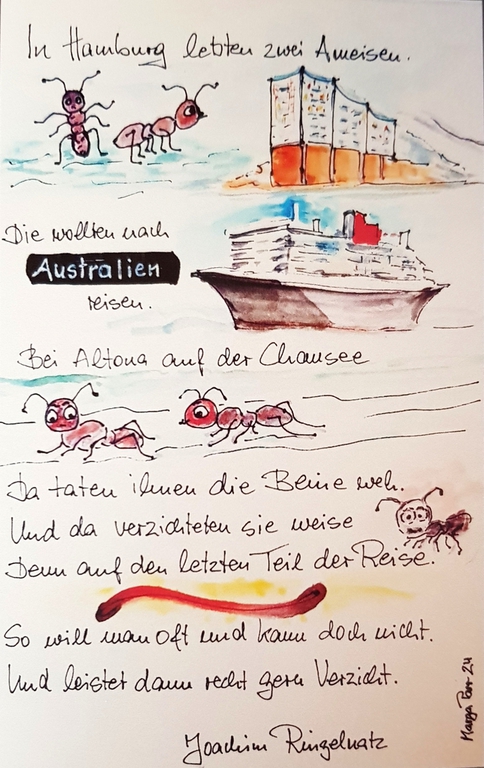 In Hamburg lebten zwei Ameisen.
Die wollten nach
Australien
reisen.
Bei Altona auf der Chausee
Da taten ihnen die Beine weh.
Und da verzichteten sie weise
Denn auf den letzten Teil der Reise.
So will man oft und kann doch nicht.
Und leistet dann recht gern Verzicht.
Joachim Ringelnatz
24